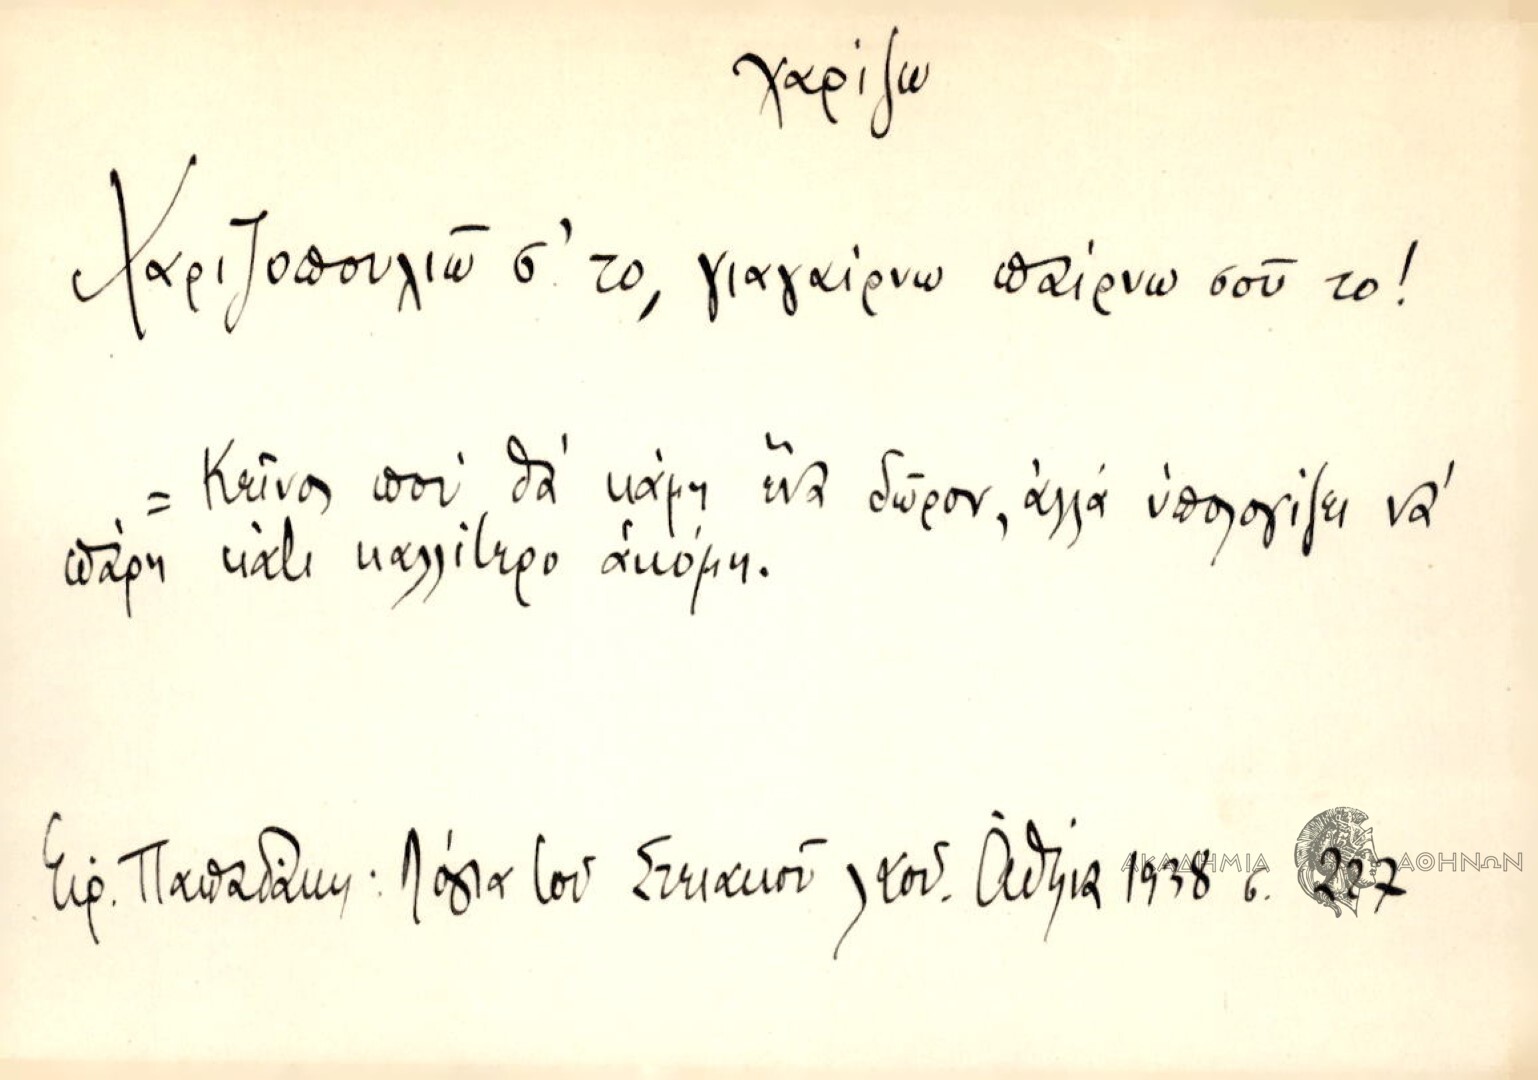 χαρίζω
Χαριζοπουλιῶ σ' το, γιαγαίρνω παίρνω σοῦ το!
= Κεῖνος ποὺ θὰ κάμη ἕνα δῶρον, ἀλλὰ ὑπολογίζει νὰ
πάρη κάτι καλλίτερο ἀκόμη.
Εἰρ. Παπαδάκη: Λόγια τοῦ Στειακοῦ λαοῦ. Ἀθήνα 1938 σ.
ΑΚΑΔΗΜΙΑ ΑΘΗΝΩΝ